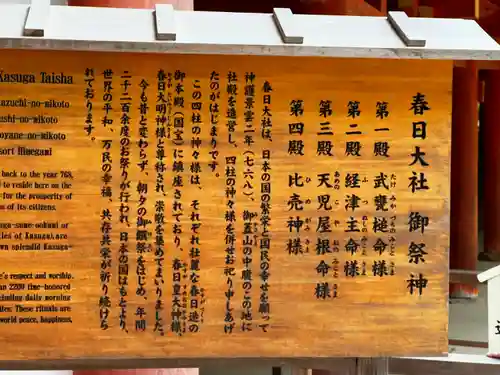 春日大社 御祭神
第一殿 武甕槌命様
たけみかづちのみことさま
第二殿 経津主命様
ふつぬしのみことさま
第三殿 天児屋根命様
あめのこやねのみことさま
第四殿 比売神様
ひめがみさま
春日大社は、日本の国の繁栄と国民の幸せを願って
神護景雲二年(七六八)、御蓋山の中腹のこの地に
社殿を造営し、四柱の神々様を併せお祀り申しあげ
たのがはじまりです。
この四柱の神々様は、それぞれ社殿を春日造の
御本殿(国宝)に鎮座されており、春日皇大神様、
春日大明神様と尊称され、崇敬を集めてまいりました。
今も昔と変わらず、朝夕の御饌祭をはじめ、年間
二千二百余度のお祭りが行われ、日本の国はもとより、
世界の平和、万民の幸福、共存共栄が祈り続けら
れております。
Kasuga Taisha
azuchi-no-mikoto
ushi-no-mikoto
oyane-no-mikoto
sort Himegami
back to the year 768,
to reside here on the
for the prosperity of
n of its citizens.
uga-sume-ookami or
ities of Kasuga), are
wn splendid Kasuga-
e's respect and worship.
an 2200 time-honored
cluding daily morning
ies. These rituals are
world peace, happiness,